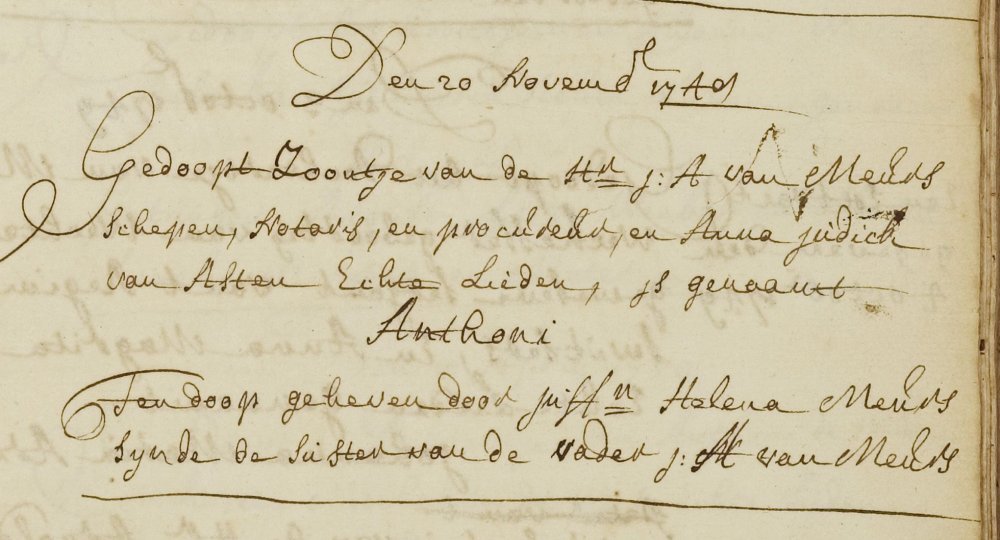 Den 20 Novemb 1749
Gedoopt Zoontje van de Hr j: A van Meurs
Schepen, Notaris, en procureur, en Anna judick
van Asten Echte Lieden, is genaamt
Anthoni
Ten doop geheven door juffr Helena Meurs
Synde de suster van de vader j: A van Meurs